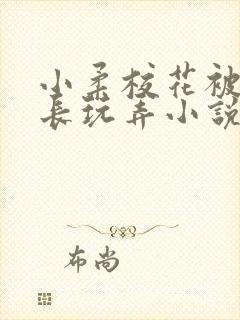 小柔校花被
长玩弄小説
布尚